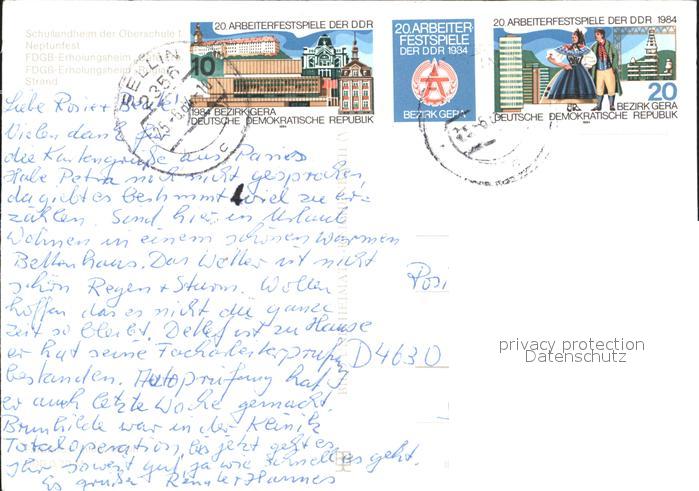 Schullandheim der Oberschule I
Neptunfest
FDGB-Erholungsheim
FDGB-Erholungsheim
Strand
SELLIN
2356
20. ARBEITERFESTSPIELE DER DDR
10
1984 BEZIRK GERA
DEUTSCHE DEMOKRATISCHE REPUBLIK
20. ARBEITER-
FESTSPIELE
DER DDR 1984
BEZIRK GERA
20. ARBEITERFESTSPIELE DER DDR 1984
20
BEZIRK GERA
DEUTSCHE DEMOKRATISCHE REPUBLIK
Liebe Rosi +
Vielen dank für
die Kartengrüße aus
Habe Petra noch nicht gesprochen
da gibt es bestimmt viel zu er-
zählen. Sind hier in Urlaub
Wohnen in einem schönen warmen
Bettenhaus. Das Wetter ist nicht
schön Regen + Sturm. Wollen
hoffen das es nicht die ganze
Zeit so bleibt. Detlef ist zu Hause
er hat seine Facharbeiterprüfung
bestanden. Autoprüfung hat
er auch letzte Woche gemacht.
Brunhilde war in der Klinik
Totaloperation, bis jetzt geht es
ihr soweit gut, ja wie schnell es geht.
Es grüßen Renate + Hannes
Pos
D4630
privacy protection
Datenschutz